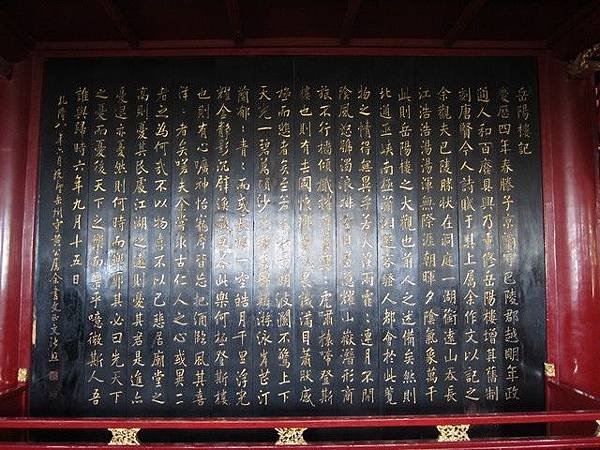 岳陽樓記
慶曆四年春滕子京謫守巴陵郡越明年政
通人和百廢具興乃重修岳陽樓增其舊制
刻唐賢今人詩賦于其上屬余作文以記之
余觀夫巴陵勝狀在洞庭一湖銜遠山吞長
江浩浩湯湯渾無際涯朝暉夕陰氣象萬千
此則岳陽樓之大觀也前人之述備矣然則
北通巫峽南極瀟湘遷客騷人都會於此覽
物之情得無異乎若夫霪雨霏:連月不開
陰風怒號濁浪排空日星隱耀山嶽潛形商
旅不行檣傾楫摧薄暮冥:虎嘯猿啼登斯
樓也則有去國懷鄉憂讒畏譏滿目蕭然感
極而悲者矣至若春和景明波瀾不驚上下
天光一碧萬頃沙鷗翔集錦鱗游泳岸芷汀
蘭郁:青:而或長煙一空皓月千里浮光
耀金靜影沉璧漁歌互答此樂何極登斯樓
也則有心曠神怡寵辱皆忘把酒臨風其喜
洋:者矣嗟夫余嘗求古仁人之心或異二
者之為何哉不以物喜不以己悲居廟堂之
高則憂其民處江湖之遠則憂其君是進亦
憂退亦憂然則何時而樂耶其必曰先天下
之憂而憂後天下之樂而樂乎噫微斯人吾
誰與歸時六年九月十五日
乾隆八年